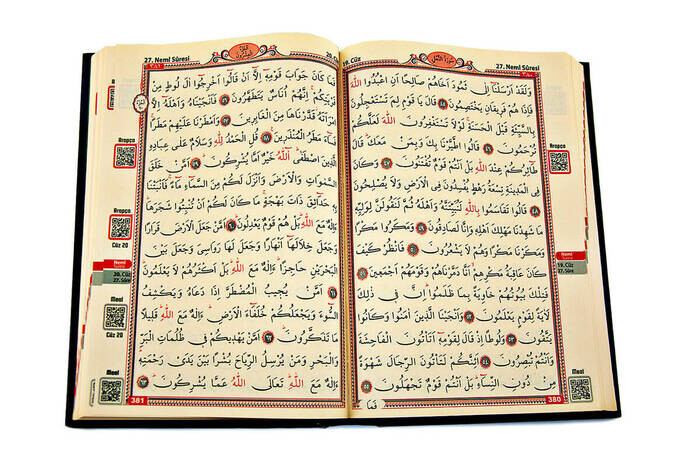 27. Neml Sûresi
19. Cüz
وَلَقَدْ اَرْسَلْنَٓا اِلٰى ثَمُودَ اَخَاهُمْ صَالِحًا اَنِ اعْبُدُوا اللّٰهَ
فَاِذَا هُمْ فَرِيقَانِ يَخْتَصِمُونَ ٤٥ قَالَ يَا قَوْمِ لِمَ تَسْتَعْجِلُونَ
بِالسَّيِّئَةِ قَبْلَ الْحَسَنَةِ لَوْلَا تَسْتَغْفِرُونَ اللّٰهَ لَعَلَّكُمْ
تُرْحَمُونَ ٤٦ قَالُوا اطَّيَّرْنَا بِكَ وَبِمَنْ مَعَكَ قَالَ
طَٓائِرُكُمْ عِنْدَ اللّٰهِ بَلْ اَنْتُمْ قَوْمٌ تُفْتَنُونَ ٤٧ وَكَانَ
فِي الْمَدِينَةِ تِسْعَةُ رَهْطٍ يُفْسِدُونَ فِي الْاَرْضِ وَلَا يُصْلِحُونَ
٤٨ قَالُوا تَقَاسَمُوا بِاللّٰهِ لَنُبَيِّتَنَّهُ وَاَهْلَهُ ثُمَّ لَنَقُولَنَّ لِوَلِيِّهِ
مَا شَهِدْنَا مَهْلِكَ اَهْلِهِ وَاِنَّا لَصَادِقُونَ ٤٩ وَمَكَرُوا مَكْرًا
وَمَكَرْنَا مَكْرًا وَهُمْ لَا يَشْعُرُونَ ٥٠ فَانْظُرْ كَيْفَ
كَانَ عَاقِبَةُ مَكْرِهِمْ اَنَّا دَمَّرْنَاهُمْ وَقَوْمَهُمْ اَجْمَعِينَ ٥١
فَتِلْكَ بُيُوتُهُمْ خَاوِيَةً بِمَا ظَلَمُوا اِنَّ فِي ذٰلِكَ
لَاٰيَةً لِقَوْمٍ يَعْلَمُونَ ٥٢ وَاَنْجَيْنَا الَّذِينَ اٰمَنُوا وَكَانُوا
يَتَّقُونَ ٥٣ وَلُوطًا اِذْ قَالَ لِقَوْمِهِٓ اَتَأْتُونَ الْفَاحِشَةَ
وَاَنْتُمْ تُبْصِرُونَ ٥٤ اَئِنَّكُمْ لَتَأْتُونَ الرِّجَالَ شَهْوَةً
مِنْ دُونِ النِّسَٓاءِ بَلْ اَنْتُمْ قَوْمٌ تَجْهَلُونَ ٥٥
فما
380
Arapça
Neml
19. Cüz
27. Sûre
Meal
27. Neml Sûresi
فَمَا كَانَ جَوَابَ قَوْمِهِٓ اِلَّٓا اَنْ قَالُٓوا اَخْرِجُٓوا اٰلَ لُوطٍ مِنْ
قَرْيَتِكُمْ اِنَّهُمْ اُنَاسٌ يَتَطَهَّرُونَ ٥٦ فَاَنْجَيْنَاهُ وَاَهْلَهُٓ اِلَّا
امْرَاَتَهُ قَدَّرْنَاهَا مِنَ الْغَابِرِينَ ٥٧ وَاَمْطَرْنَا عَلَيْهِمْ مَطَرًا
فَسَٓاءَ مَطَرُ الْمُنْذَرِينَ ٥٨ قُلِ الْحَمْدُ لِلّٰهِ وَسَلَامٌ عَلٰى عِبَادِهِ
الَّذِينَ اصْطَفٰى آٰللّٰهُ خَيْرٌ اَمَّا يُشْرِكُونَ ٥٩ اَمَّنْ خَلَقَ
السَّمٰوَاتِ وَالْاَرْضَ وَاَنْزَلَ لَكُمْ مِنَ السَّمَٓاءِ مَٓاءً فَاَنْبَتْنَا
بِهِ حَدَٓائِقَ ذَاتَ بَهْجَةٍ مَا كَانَ لَكُمْ اَنْ تُنْبِتُوا شَجَرَهَا
ءَاِلٰهٌ مَعَ اللّٰهِ بَلْ هُمْ قَوْمٌ يَعْدِلُونَ ٦٠ اَمَّنْ جَعَلَ الْاَرْضَ قَرَارًا
وَجَعَلَ خِلَالَهَٓا اَنْهَارًا وَجَعَلَ لَهَا رَوَاسِيَ وَجَعَلَ بَيْنَ
الْبَحْرَيْنِ حَاجِزًا ءَاِلٰهٌ مَعَ اللّٰهِ بَلْ اَكْثَرُهُمْ لَا يَعْلَمُونَ
٦١ اَمَّنْ يُجِيبُ الْمُضْطَرَّ اِذَا دَعَاهُ وَيَكْشِفُ
السُّٓوءَ وَيَجْعَلُكُمْ خُلَفَٓاءَ الْاَرْضِ ءَاِلٰهٌ مَعَ اللّٰهِ قَلِيلًا
مَا تَذَكَّرُونَ ٦٢ اَمَّنْ يَهْدِيكُمْ فِي ظُلُمَاتِ الْبَرِّ
وَالْبَحْرِ وَمَنْ يُرْسِلُ الرِّيَاحَ بُشْرًا بَيْنَ يَدَيْ رَحْمَتِهِ
ءَاِلٰهٌ مَعَ اللّٰهِ تَعَالَى اللّٰهُ عَمَّا يُشْرِكُونَ ٦٣
381
Arapça
Arapça
Cüz 20
Neml
20. Cüz
27. Sûre
Meal
Cüz 20
Meal